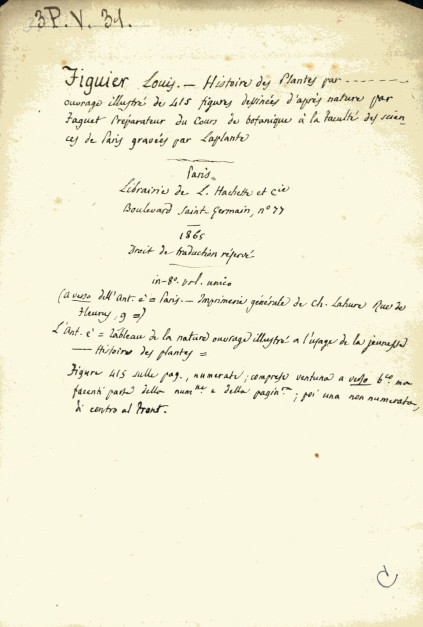 3P.V.31.
Figuier Louis. — Histoire des Plantes par
ouvrage illustré de 415 figures dessinées d'après nature par
Faguet Préparateur du Cours de botanique à la faculté des scien-
ces de Paris gravées par Laplante
Paris.
Librairie de L. Hachette et Cie
Boulevard Saint-Germain, n° 77
1865
Droit de traduction réservé
in-8°. vol. unico
(a verso dell'Ant. è = Paris. — Imprimerie générale de Ch. Lahure Rue de
Fleurus, 9 =)
L'Ant. è = Tableau de la nature ouvrage illustré a l'usage de la jeunesse
— Histoire des plantes =
Figure 415 sulle pag., numerate; comprese ventuna a verso b.co ma
facenti parte della num.ne e della pagin.ra; poi una non numerata,
di contro al Front.
C